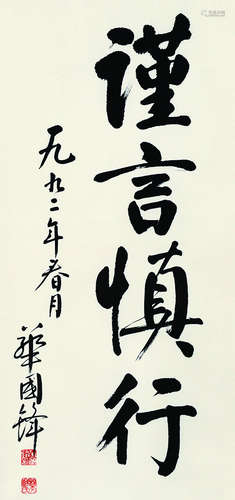 謹言慎行
一九九二年春月
華國鋒